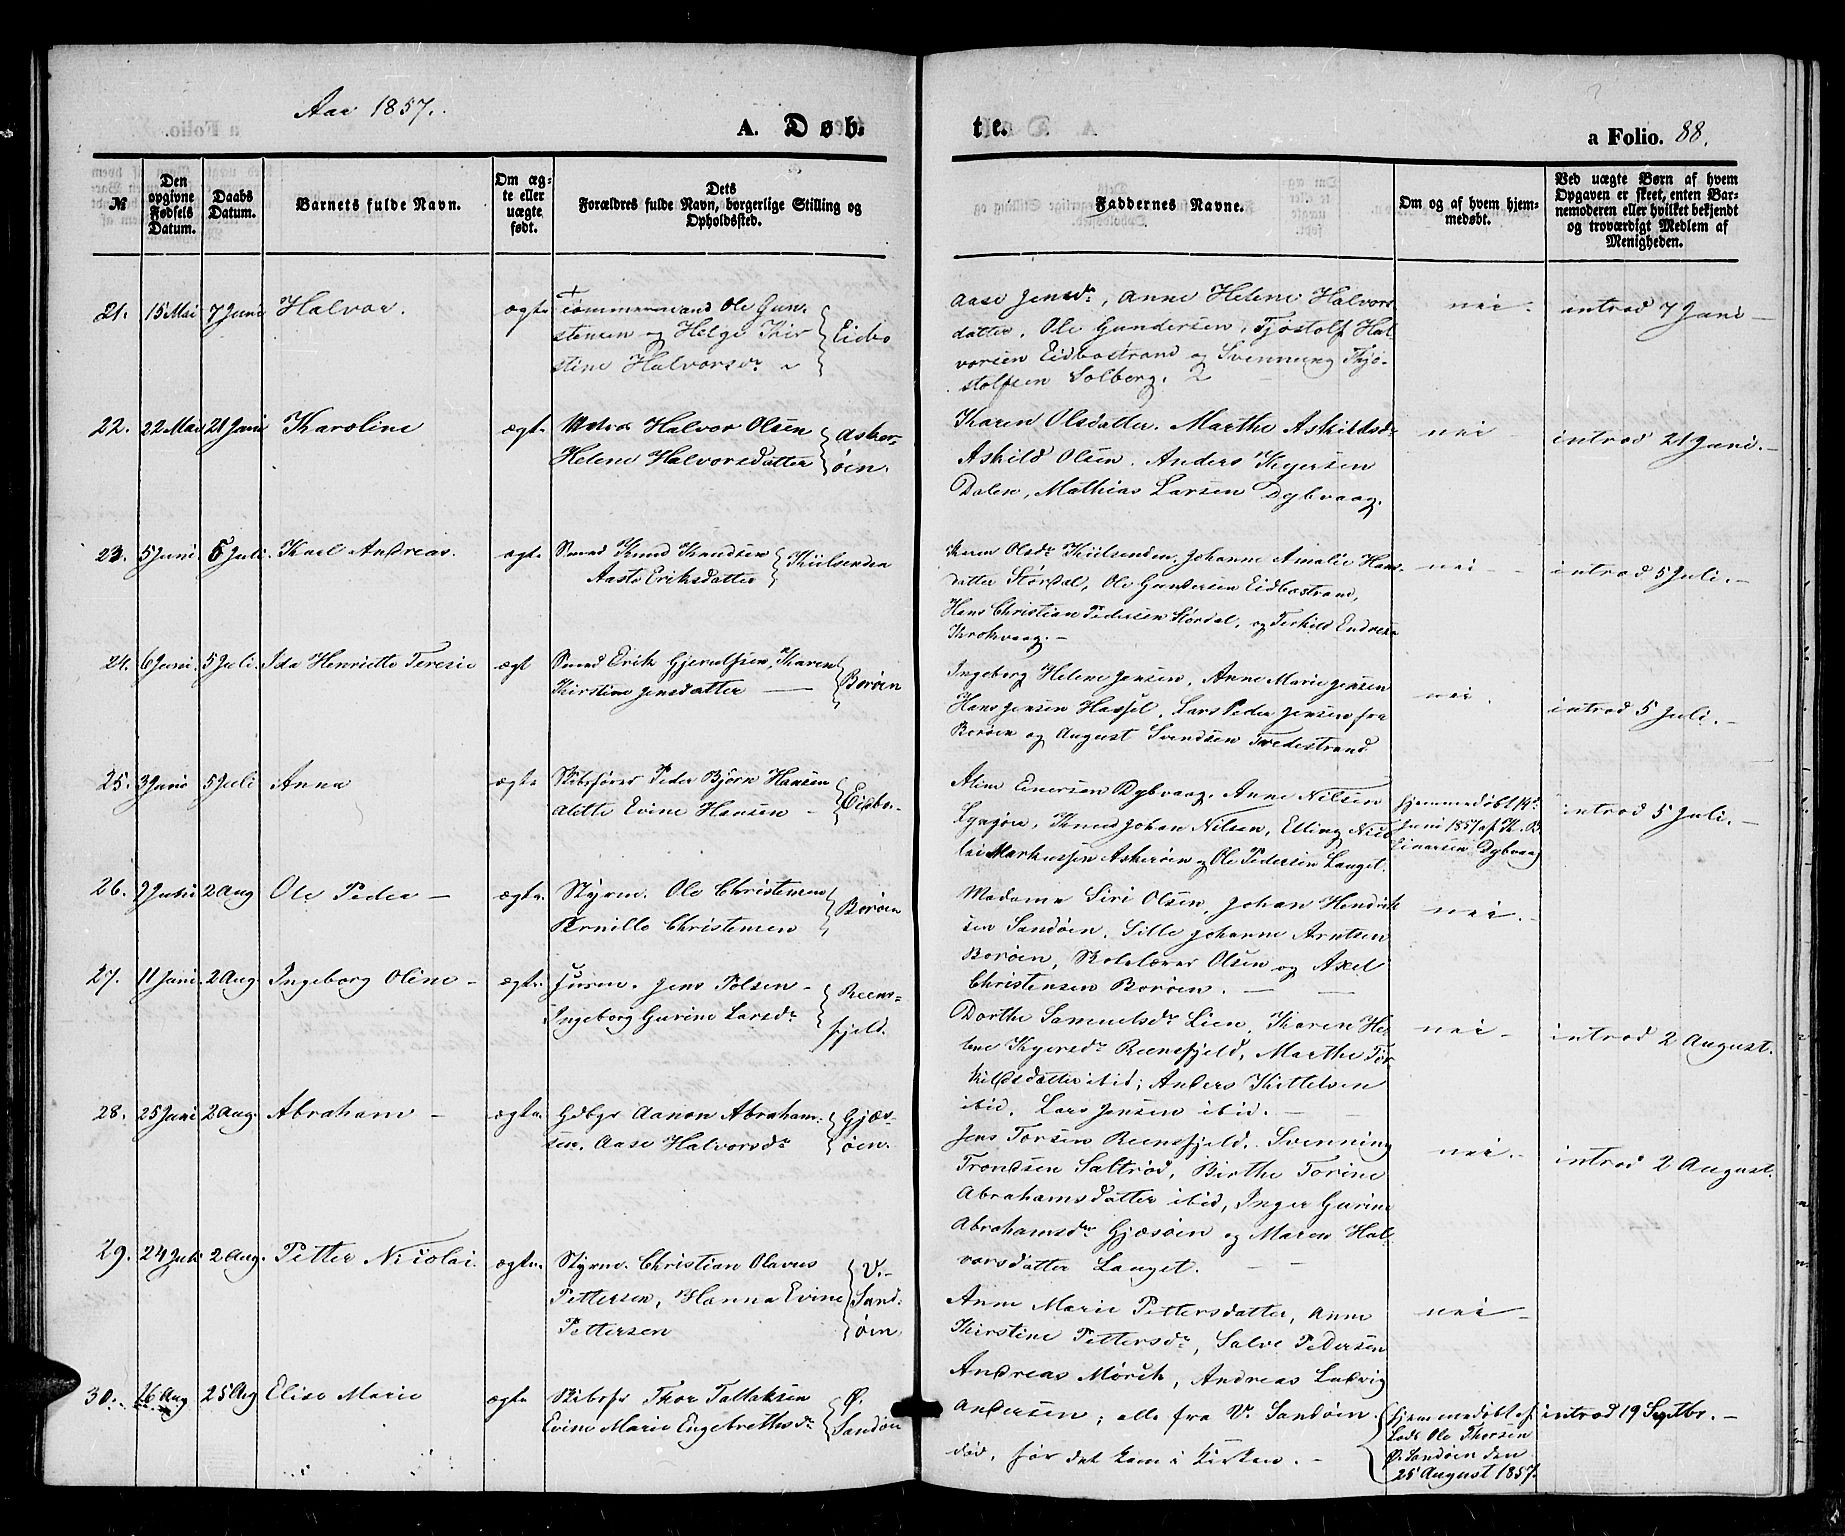 Aar 1857.
A. Døb
te.
a Folio. 88.
№
Den opgivne Fødsels Datum.
Daabs Datum.
Barnets fulde Navn.
Om ægte eller uægte født.
Dets Forældres fulde Navn, borgerlige Stilling og Opholdssted.
Faddernes Navne.
Om og af hvem hjemmedøbt.
Ved uægte Børn af hvem Opgaven er skeet, enten Barnemoderen eller hvilket bekjendt og troværdigt Medlem af Menigheden.
21. 15 Mai 7 Juni Halvor. ægte
Tømmermand Ole Gun-
stensen og Helge Kir
stine Halvorsdr
Eidbo
Aase Jensdr, Anne Helene Halvors
datter, Ole Gundersen, Tjostolf Hal
vorsen Eidbostrand og Svennung Thjo-
stolfsen Solberg.
nei.
introd 7 Juni
22. 22 Mai 21 Juni Karoline ægte
Matros Halvor Olsen
Helene Halvorsdatter
Asker-
øen.
Karen Olsdatter. Marthe Askildsdr
Askild Olsen. Anders Kgersen
Dalen, Mathias Larsen Dybvaag.
nei
introd 21 Juni.
23. 5 Juni. 5 Juli. Karl Andreas. ægte
Smed Knud Knudsen
Aaste Eriksdatter
Kiilsenden
Karen Olsdr Kiilsenden. Johanne Amalie Hans-
datter Stordal, Ole Gundersen Eidbostrand,
Hans Christian Pedersen Stordal, og Terkild Endresen
Krokvaag.
nei
introd 5 Juli.
24. 6 Juni. 5 Juli. Ida Henriette Teresie ægt
Smed Erik Gjerulfsen, Karen
Kirstine Jensdatter
Borøen
Ingeborg Helene Jensen, Anne Marie Jensen
Hans Jensen Hassel, Lars Peder Jensen fra
Borøen og August Svendsen Tvedestrand
nei.
introd 5 Juli.
25. 3 Juni 5 Juli Anna ægte
Skibsfører Peder Bjørn Hansen
Alette Evine Hansen
Eidbo.
Aline Einersen Dybvaag. Anne Nilsen
Lyngør, Knud Johan Nilsen, Elling Nico
lai Markussen Askerøen og Ole Pedersen Langet.
hjemmedøbt 14de
Juni 1857 af K. B.
Einersen Dybvaag
introd 5 Juli.
26. 2 Aug Ole Peder ægte.
Styrm. Ole Christensen
Pernille Christensen
Borøen
Madame Siri Olsen, Johan Hendrik
sen Sandøen, Sille Johanne Arntsen
Borøen, Skolelærer Olsen og Axel
Christensen Borøen.
nei.
27. 11 Juni. 2 Aug. Ingeborg Oline ægte.
Jens
Ingeborg Gurine Larsdr
Reens-
fjeld.
Dorthe Samuelsdr Lien, Karen He-
lene Kgersdr Reensfjeld, Marthe Tor
kildsdatter ibid; Anders Kittelsen
ibid. Lars Jensen ibid.
nei
introd 2 August.
28. 25 Juni 2 Aug. Abraham ægte.
Gdbgr Aanon Abraham-
sen. Aase Halvorsdr
Gjæs-
øen.
Jens Torsen Reensfjeld. Svenning
Trondsen Saltrød, Birthe Torine
Abrahamsdatter ibid, Inger Gurine
Abrahamsdr Gjæsøen og Maren Hal-
vorsdatter Langet.
nei.
introd 2 August.
29. 24 Juli 2 Aug. Petter Nicolai. ægte.
Styrm. Christian Olavus
Pettersen, Hanna Evine
Pettersen
V.
Sand-
øen
Anne Marie Pettersdatter, Anne
Kirstine Pettersdr, Salve Pedersen
Andreas Mørch, Andreas Ludvig
Andersen; alle fra V. Sandøen.
nei
30. 16 Aug 25 Aug Elise Marie ægte
Skibsfr Thor Tallaksen
Evine Marie Engebrethsdr
Ø.
Sandøen
død, før det kom i Kirken.
hjemmedøbt af
Lods Ole Thorsen
Ø. Sandøen den
25 August 1857.
introd 19 Septbr.